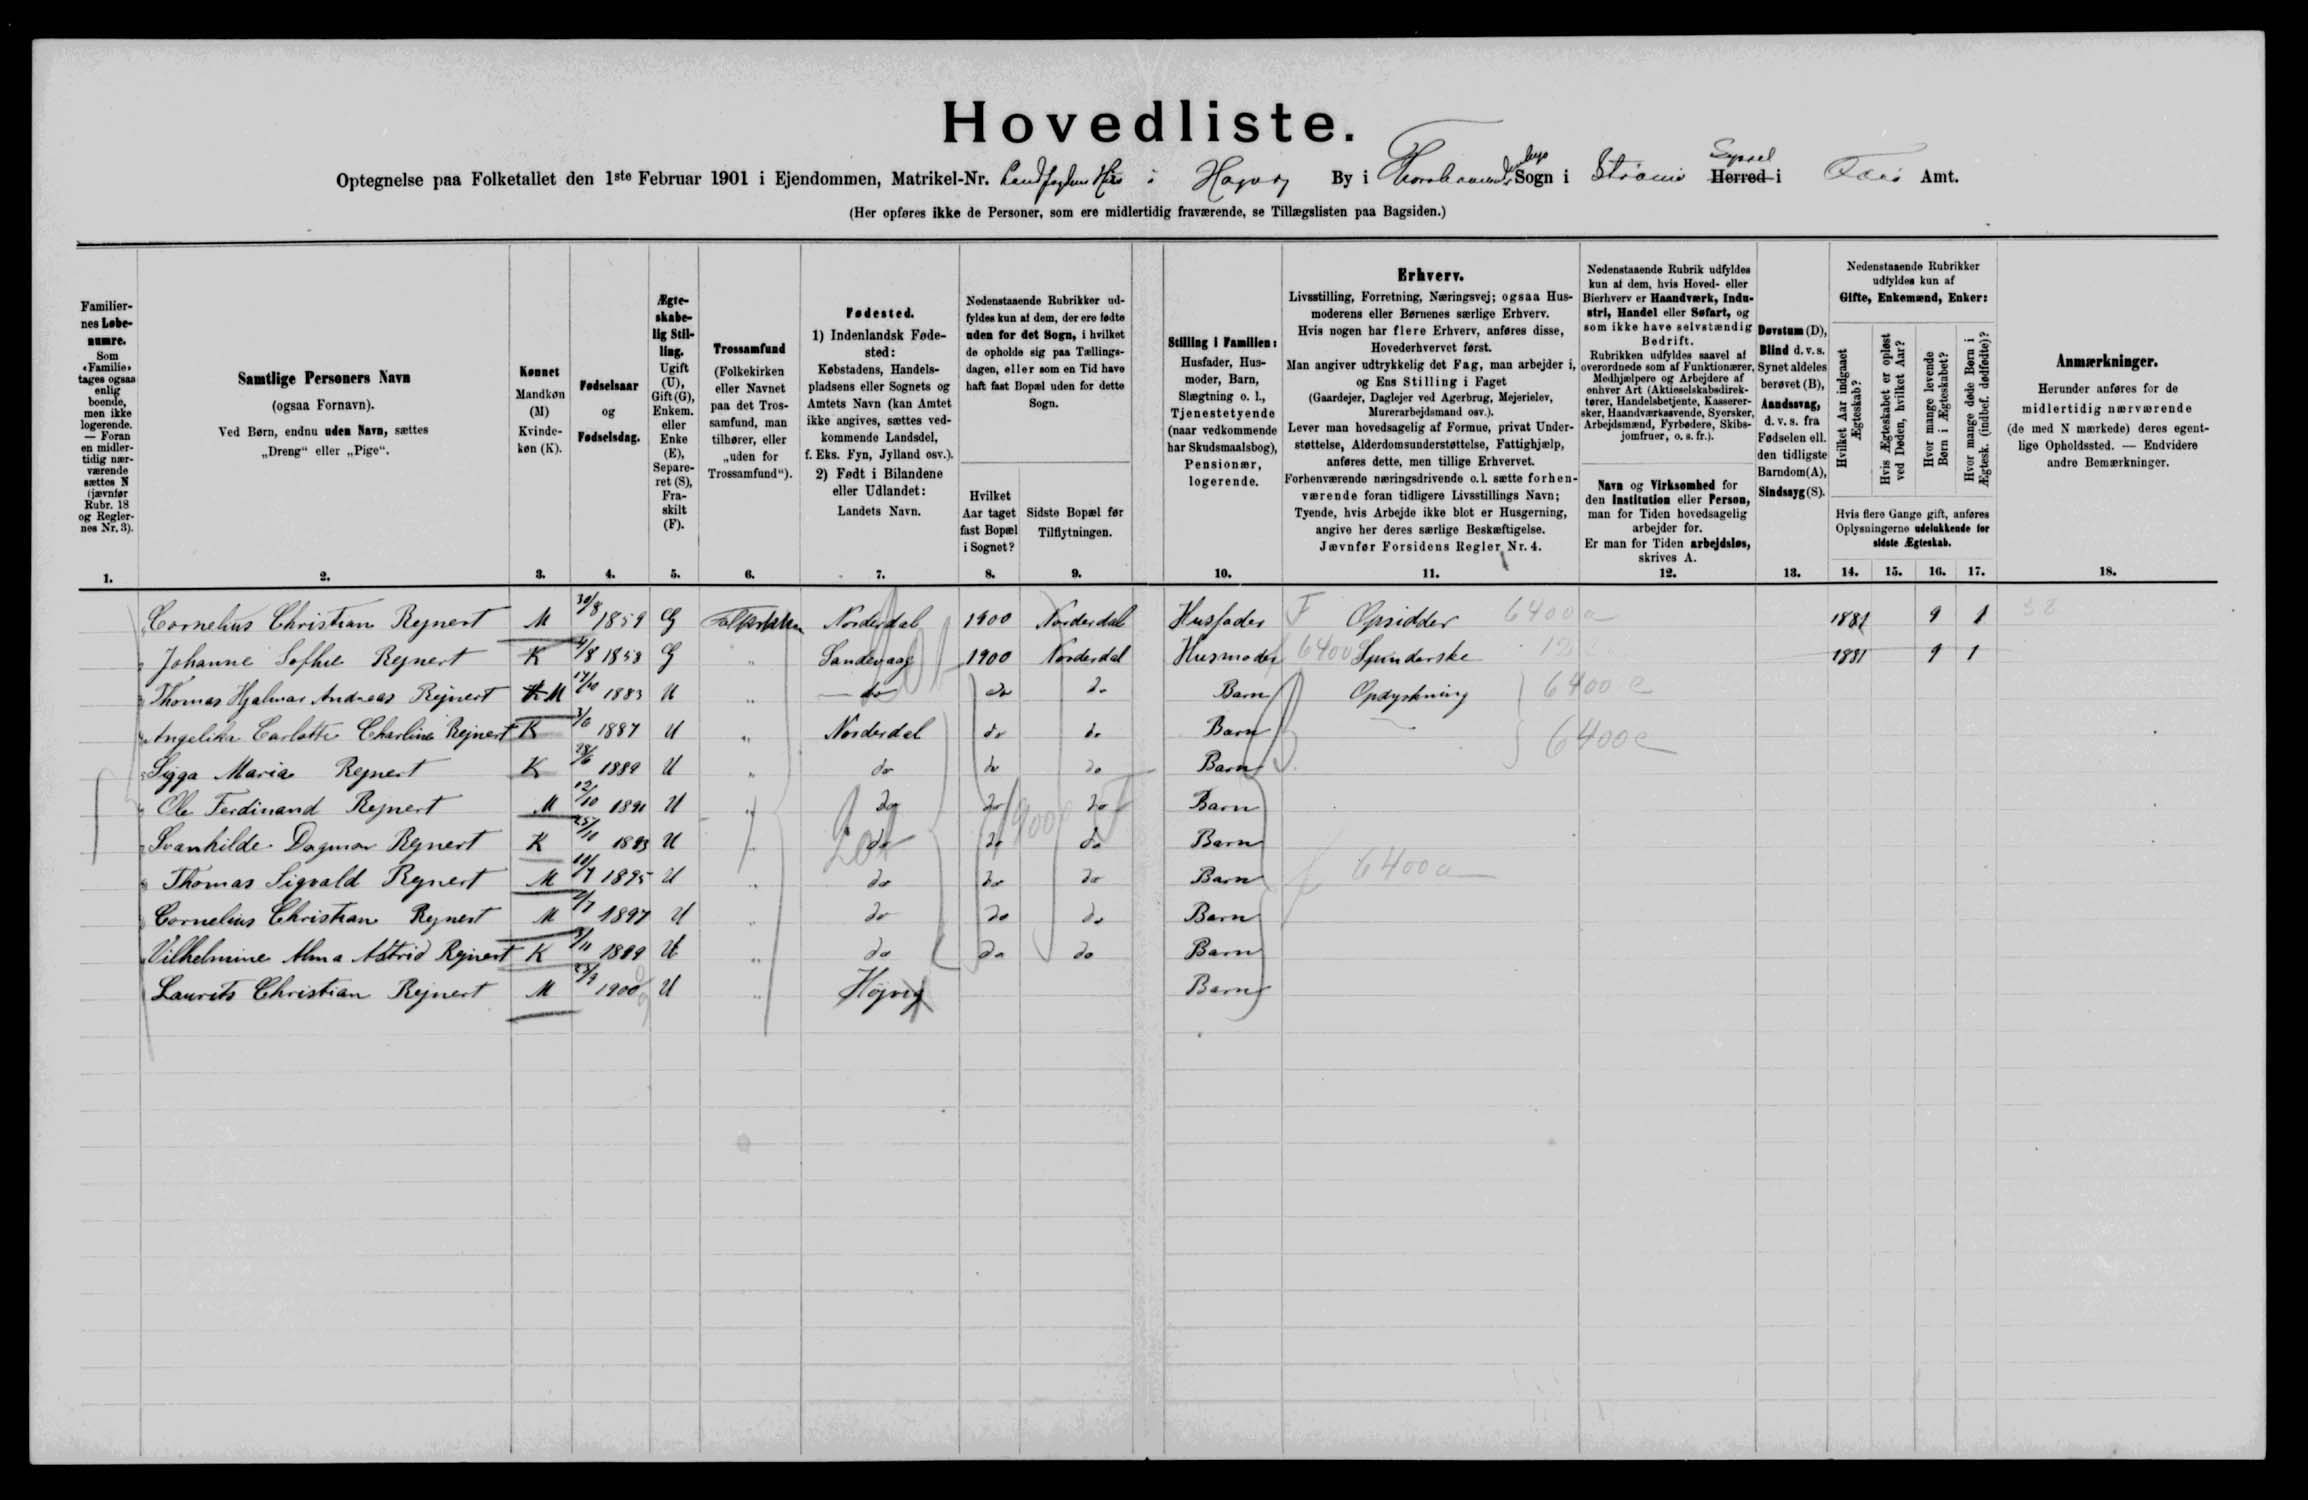 Hovedliste.
Optegnelse paa Folketallet den 1ste Februar 1901 i Ejendommen, Matrikel-Nr. i By i Sogn i Strømø Syssel Herred i Færø Amt.
(Her opføres ikke de Personer, som ere midlertidig fraværende, se Tillægslisten paa Bagsiden.)
Familiernes Løbenumre. Som «Familie» tages ogsaa enlig boende, men ikke logerende. — Foran en midlertidig nærværende sættes N (jævnfør Rubr. 18 og Reglernes Nr. 3).
Samtlige Personers Navn (ogsaa Fornavn). Ved Børn, endnu uden Navn, sættes „Dreng“ eller „Pige“.
Kønnet Mandkøn (M) Kvindekøn (K).
Fødselsaar og Fødselsdag.
Ægteskabelig Stilling. Ugift (U), Gift (G), Enkem. eller Enke (E), Separeret (S), Fraskilt (F).
Trossamfund (Folkekirken eller Navnet paa det Trossamfund, man tilhører, eller „uden for Trossamfund“).
Fødested. 1) Indenlandsk Fødested: Købstadens, Handelspladsens eller Sognets og Amtets Navn (kan Amtet ikke angives, sættes vedkommende Landsdel, f. Eks. Fyn, Jylland osv.). 2) Født i Bilandene eller Udlandet: Landets Navn.
Nedenstaaende Rubrikker udfyldes kun af dem, der ere fødte uden for det Sogn, i hvilket de opholde sig paa Tællingsdagen, eller som en Tid have haft fast Bopæl uden for dette Sogn.
Hvilket Aar taget fast Bopæl i Sognet?
Sidste Bopæl før Tilflytningen.
Stilling i Familien: Husfader, Husmoder, Barn, Slægtning o. l., Tjenestetyende (naar vedkommende har Skudsmaalsbog), Pensionær, logerende.
Erhverv.
Livsstilling, Forretning, Næringsvej; ogsaa Husmoderens eller Børnenes særlige Erhverv.
Hvis nogen har flere Erhverv, anføres disse, Hovederhvervet først.
Man angiver udtrykkelig det Fag, man arbejder i, og Ens Stilling i Faget
(Gaardejer, Daglejer ved Agerbrug, Mejerielev, Murerarbejdsmand osv.).
Lever man hovedsagelig af Formue, privat Understøttelse, Alderdomsunderstøttelse, Fattighjælp, anføres dette, men tillige Erhvervet.
Forhenværende næringsdrivende o. l. sætte forhenværende foran tidligere Livsstillings Navn;
Tyende, hvis Arbejde ikke blot er Husgerning, angive her deres særlige Beskæftigelse.
Jævnfør Forsidens Regler Nr. 4.
Nedenstaaende Rubrik udfyldes kun af dem, hvis Hoved- eller Bierhverv er Haandværk, Industri, Handel eller Søfart, og som ikke have selvstændig Bedrift.
Rubrikken udfyldes saavel af overordnede som af Funktionærer, Medhjælpere og Arbejdere af enhver Art (Aktieselskabsdirektører, Handelsbetjente, Kasserersker, Haandværkssvende, Syersker, Arbejdsmænd, Fyrbødere, Skibsjomfruer, o. s. fr.).
Navn og Virksomhed for den Institution eller Person, man for Tiden hovedsagelig arbejder for.
Er man for Tiden arbejdsløs, skrives A.
Døvstum (D), Blind d. v. s. Synet aldeles berøvet (B), Aandssvag, d. v. s. fra Fødselen ell. den tidligste Barndom (A), Sindssyg (S).
Nedenstaaende Rubrikker udfyldes kun af Gifte, Enkemænd, Enker:
Hvilket Aar indgaaet Ægteskab?
Hvis Ægteskabet er opløst ved Døden, hvilket Aar?
Hvor mange levende Børn i Ægteskabet?
Hvor mange døde Børn i Ægtesk. (indbef. dødfødte)?
Hvis flere Gange gift, anføres Oplysningerne udelukkende for sidste Ægteskab.
Anmærkninger.
Herunder anføres for de midlertidig nærværende (de med N mærkede) deres egentlige Opholdssted. — Endvidere andre Bemærkninger.
1. 2. 3. 4. 5. 6. 7. 8. 9. 10. 11. 12. 13. 14. 15. 16. 17. 18.
Cornelius Christian Rejnert M 30/8 1859 G Folkekirken Norderdal 1900 Norderdal Husfader F Opsidder 6400a 1881 9 1 38
Johanne Sofhie Rejnert K 4/8 1858 G " Sandevaag 1900 Norderdal Husmoder 6400 Spinderske 1881 9 1
Thomas Hjalmar Andreas Rejnert K M 1883 U " do do do Barn 6400 c
Angelika Carlotte Charline Rejnert K 1887 U " Norderdal do do Barn 6400c
Sigga Maria Rejnert K 28/6 1889 U " do do do Barn
Ole Ferdinand Rejnert M 12/10 1891 U " do do do Barn
Svanhilde Dagmar Rejnert K 25/10 1893 U " do do do Barn
Thomas Sigvald Rejnert M 1895 U " do do do Barn 6400a
Cornelius Christian Rejnert M 1897 U " do do do Barn
Vilhelmine Alma Astrid Rejnert K 1899 U " do do do Barn
Laurits Christian Rejnert M 1900 U " Højvig Barn